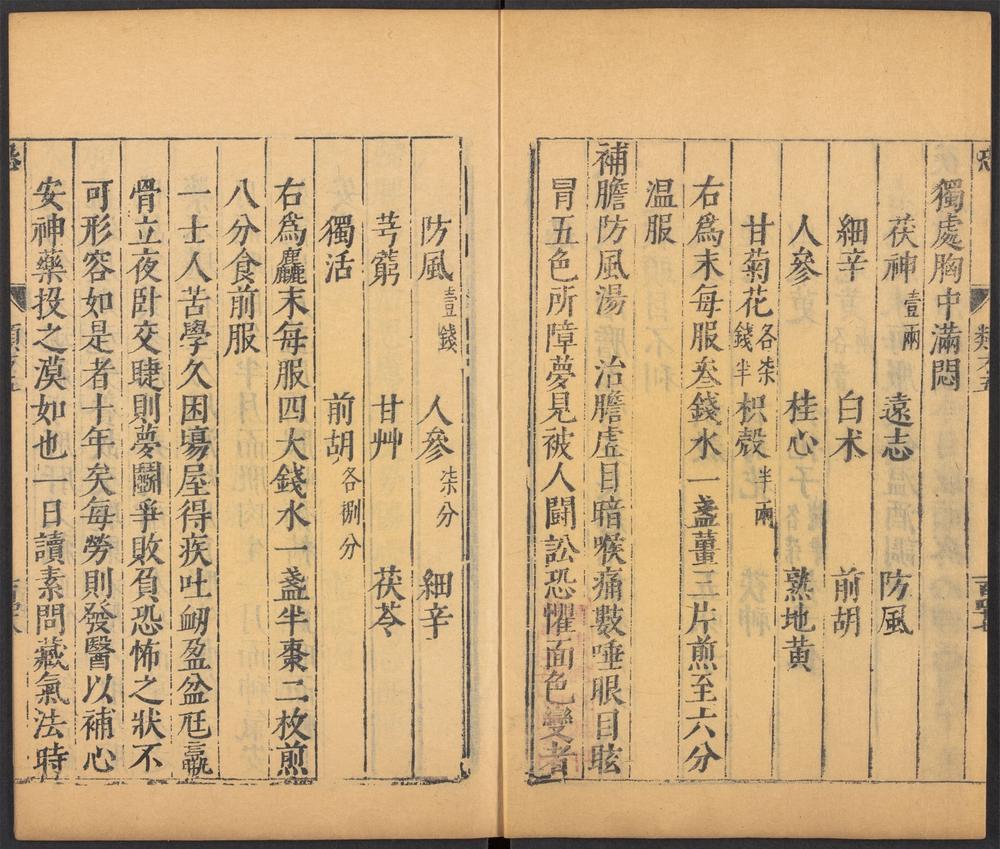 獨處胸中滿悶
茯神壹兩 遠志 防風
細辛 白朮 前胡
人參 桂心 熟地黃
甘菊花各柒錢半 枳殼半兩
右爲末每服叁錢水一盞薑三片煎至六分
溫服
補膽防風湯 治膽虛目暗喉痛數唾眼目眩
冒五色所障夢見被人鬬訟恐懼面色變者
防風壹錢 人參柒分 細辛
芎藭 甘艸 茯苓
獨活 前胡各捌分
右爲麤末每服四大錢水一盞半棗二枚煎
八分食前服
一士人苦學久困塲屋得疾吐衂盈盆尫羸
骨立夜卧交睫則夢鬭爭敗負恐怖之狀不
可形容如是者十年矣每勞則發醫以補心
安神藥投之漠如也一日讀素問藏氣法時